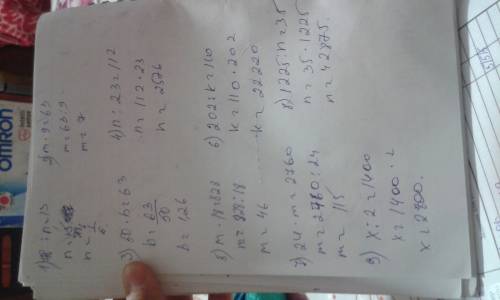 2) m·9=63
m=63:9
m=7
3) 50·b=63
b=63/50
b=1,26
4) n:23=112
n=112·23
n=2576
5) m·18=828
m=828:18
m=46
6) 202:k=110
k=110·202
k=22220
7) 24·m=2760
m=2760:24
m=115
8) 1225:n=35
n=35·1225
n=42875.
9) x:2=1400
x=1400·2
x=2800.
OMRON